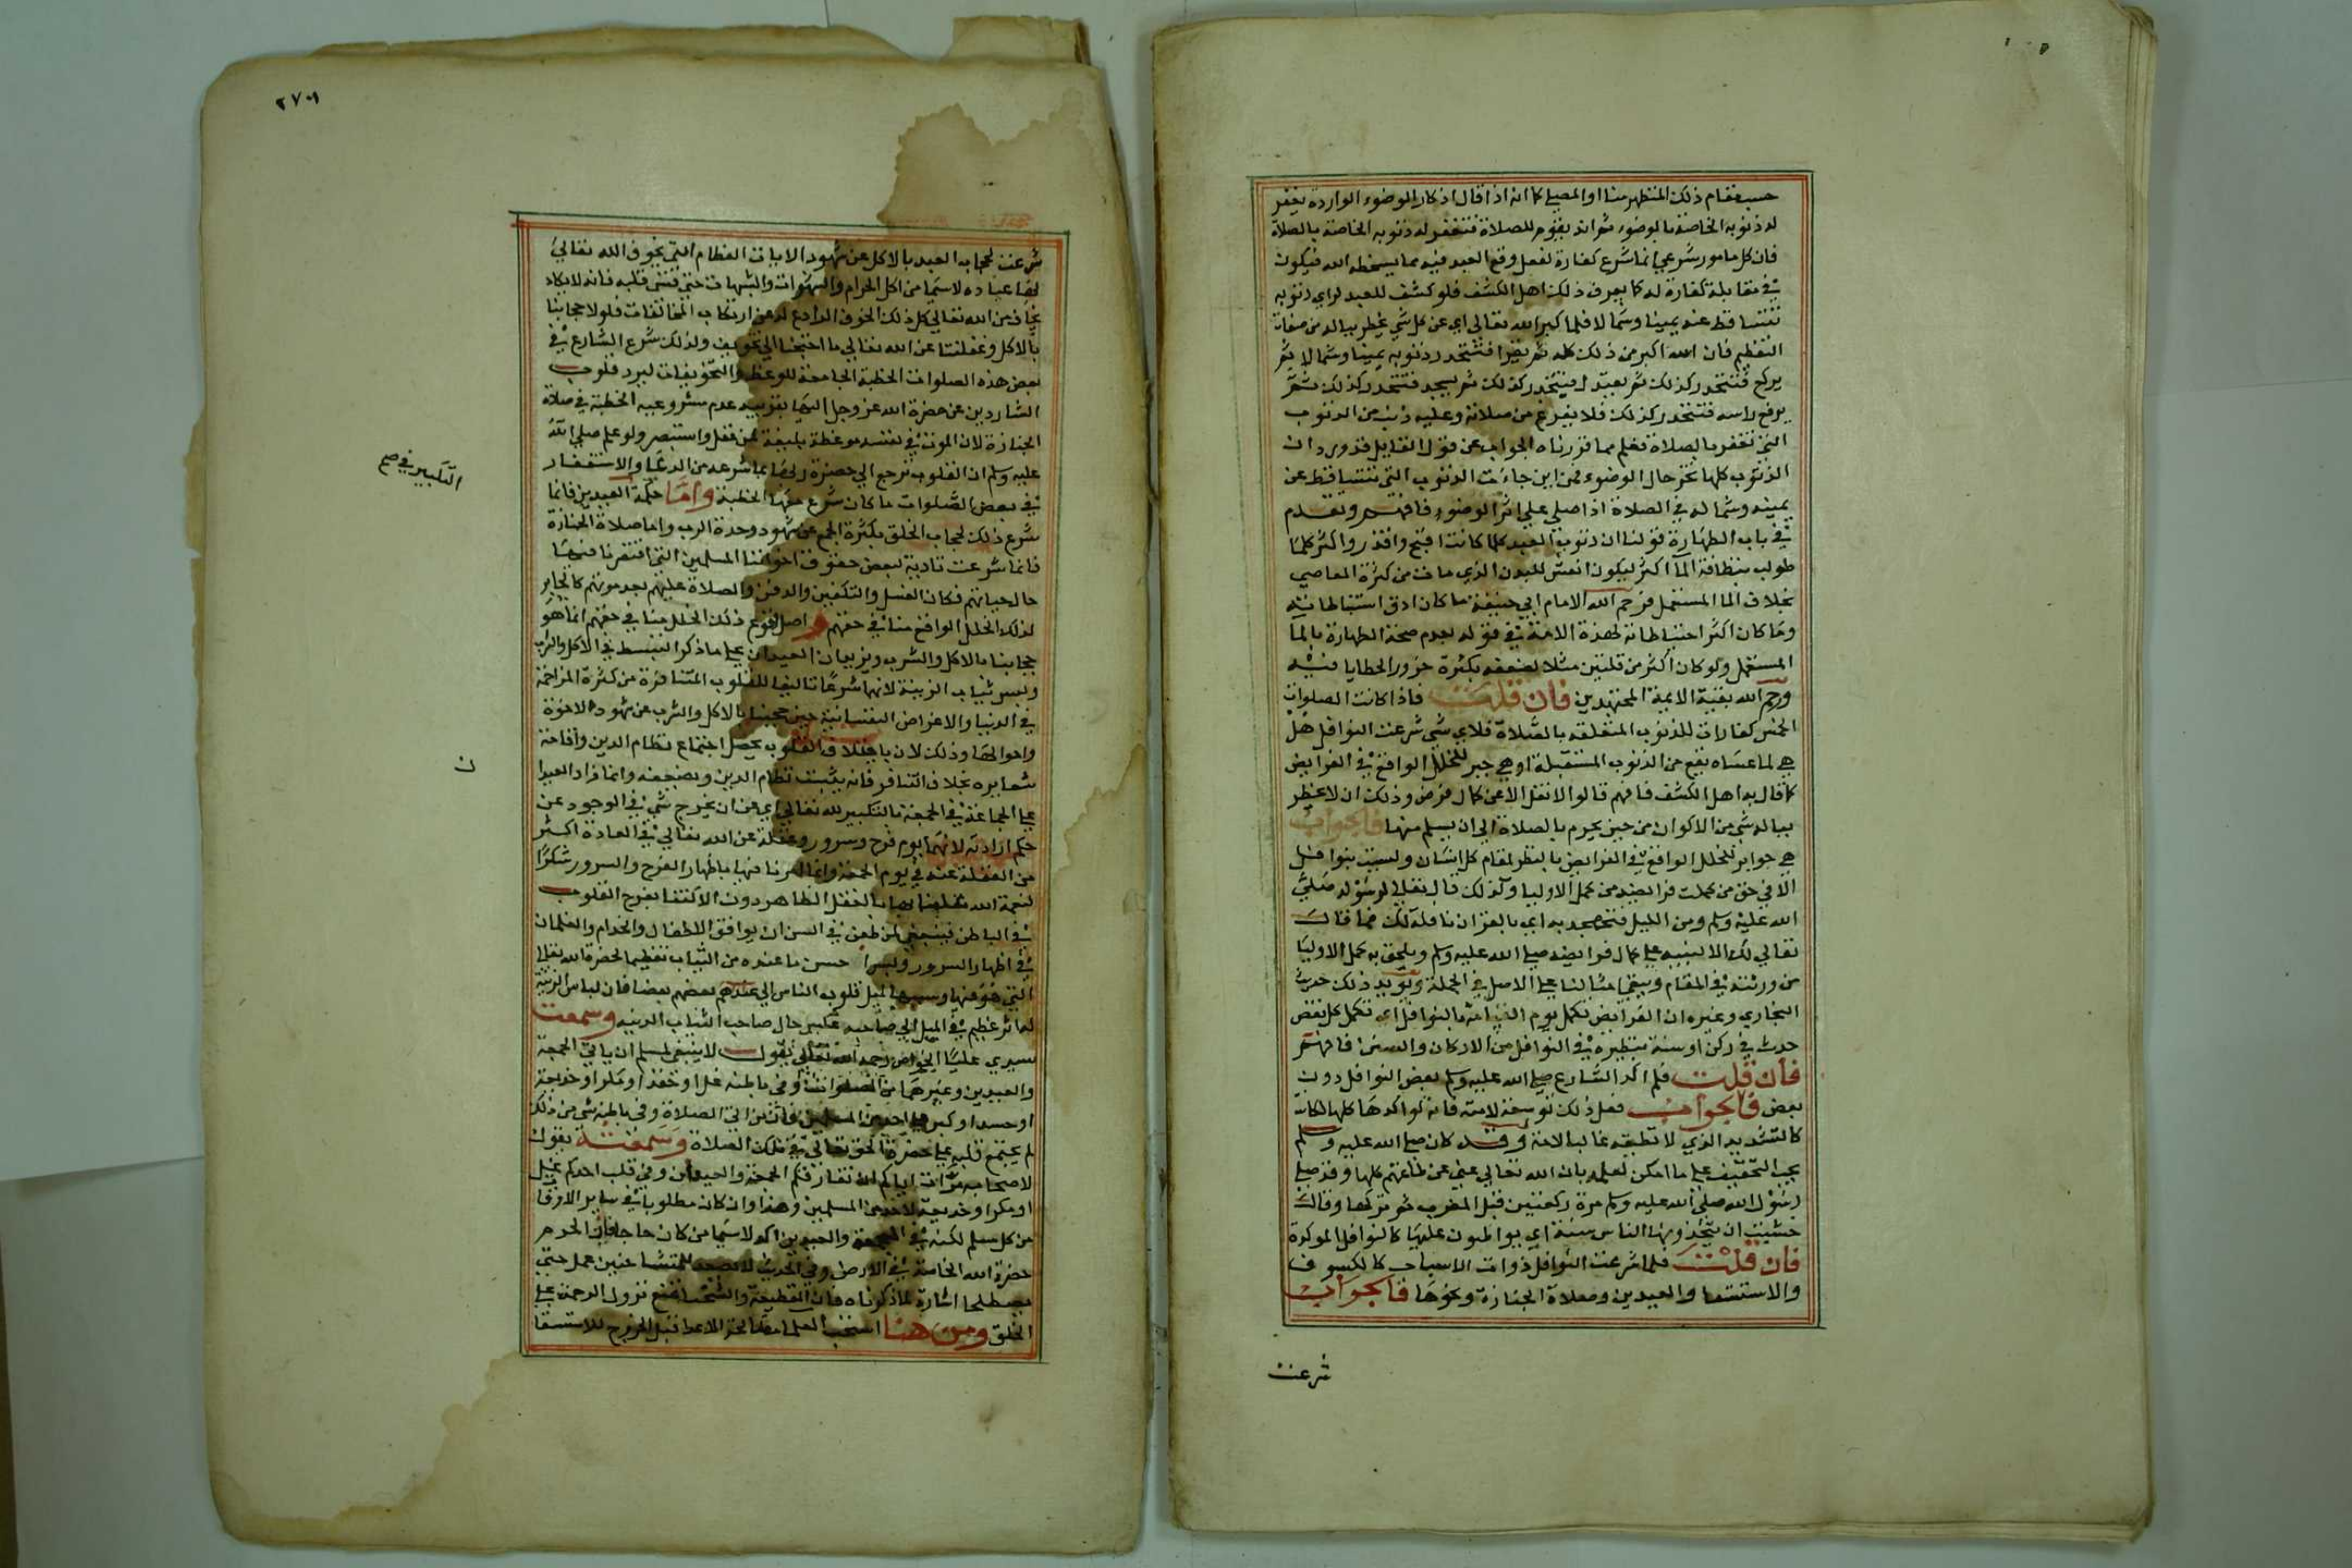 حسب مقام ذلك المتطهر منا او المصلي كما انه اذا قال اذكار الوضوء الواردة يغفر
له ذنوبه الخاصة بالوضوء ثم انه يقوم للصلاة فتغفر له ذنوبه الخاصة بالصلاة
فان كل مامور شرعي انما شرع كفارة لفعل وقع العبد فيه مما يسخط الله فيكون
في مقابلة كفارة له كما يعرف ذلك اهل الكشف فلو كشف للعبد لراي ذنوبه
تتساقط عنه يمينا وشمالا فلما كبر الله تعالى اي عن كل شي يخطر بباله من صفات
التعظيم فان الله اكبر من ذلك كله ثم يقرا فتتحدر ذنوبه يمينا وشمالا ثم
يركع فتتحدر كذلك ثم يعتدل فيتحدر كذلك ثم يسجد فتتحدر كذلك ثم
يرفع راسه فتتحدر كذلك فلا يفرغ من صلاته وعليه ذنب من الذنوب
التي تغفر بالصلاة فعلم مما قررناه الجواب عن قول القايل قد ورد ان
الذنوب كلها تخر حال الوضوء فمن اين جاءت الذنوب التي تتساقط عن
يمينه وشماله في الصلاة اذا صلي علي اثر الوضوء فافهم وتقدم
في باب الطهارة قولنا ان ذنوب العبد كلما كانت اقبح واقذر واكثر كلما
طولب بنظافة الما اكثر ليكون انعش للبدن الذي مات من كثرة المعاصي
بخلاف الما المستعمل فرحم الله الامام ابي حنيفة ما كان ادق استنباطاته
وما كان اكثر احتياطاته لهذه الامة في قوله بعدم صحة الطهارة بالما
المستعمل ولو كان اكثر من قلتين مثلا لضعفه بكثرة خرور الخطايا فيه
ورحم الله بقية الايمة المجتهدين فان قلت فاذا كانت الصلوات
الخمس كفارات للذنوب المتعلقة بالصلاة فلاي شي شرعت النوافل هل
هي لما عساه يقع من الذنوب المستقبلة او هي جبر للخلل الواقع في الفرايض
كما قال به اهل الكشف فانهم قالوا لا نفل الا عن كمال فرض وذلك ان لا يخطر
بباله شي من الاكوان من حين يحرم بالصلاة الى ان يسلم منها فالجواب
هي جوابر للخلل الواقع في الفرايض بالنظر لمقام كل انسان وليست بنوافل
الا في حق من كملت فرايضه من كمل الاوليا وكذلك قال تعالى لرسوله صلى
الله عليه وسلم ومن الليل فتهجد به اي بالقران نافلة لك فما قال
تعالى لك الا لينبه علي كمال فرايضه صلى الله عليه وسلم ويلحق به كمل الاوليا
من ورثته في المقام ويبقى امثالنا علي الاصل في الجملة ويؤيد ذلك حديث
البخاري وغيره ان الفرايض تكمل يوم القيامة بالنوافل اي تكمل كل نقص
حدث في ركن او سنة بنظيره في النوافل من الاركان والسنن فافهم
فان قلت فلم اكد الشارع صلى الله عليه وسلم بعض النوافل دون
بعض فالجواب فعل ذلك توسعة لامته فانه لو اكدها كلها لكانت
كالتشديد الذي لا تطيقه غالب الامة وقد كان صلى الله عليه وسلم
يحب التخفيف علي ما امكن لعلمه بان الله تعالى غني عن طاعتهم كلها وقد صلى
رسول الله صلى الله عليه وسلم مرة ركعتين قبل المغرب ثم تركها وقال
خشيت ان يتخذونها الناس سنة اي يواظبون عليها كالنوافل الموكدة
فان قلت فلما شرعت النوافل ذوات الاسباب كالكسوف
والاستسقا والعيدين وصلاة الجنازة ونحوها فالجواب
شرعت
٢٧٠٩
شرعت لحجابه العبد بالاكل عن شهود الايات العظام التي يخوف الله تعالى
بها عباده لاسيما من اكل الحرام والشهوات والشبهات حتى قسى قلبه فانه لا يكاد
يخاف من الله تعالى كل ذلك الخوف الرادع له عن ارتكاب المخالفات فلولا حجابنا
بالاكل وغفلتنا عن الله تعالى ما احتجنا الى تخويف ولذلك شرع الشارع في
بعض هذه الصلوات الخطبة الجامعة للوعظ والتخويفات ليرد قلوب
الشاردين عن حضرة الله عز وجل اليها بقرينة عدم مشروعية الخطبة في صلاة
الجنازة لان الموت في نفسه موعظة بليغة لمن عقل واستبصر ولو علم صلى الله
عليه وسلم ان القلوب ترجع الى حضرة ربها بما شرعه من الدعا والاستغفار
في بعض الصلوات ما كان شرع معها الخطبة واما حكمة العيدين فانما
شرع ذلك لحجاب الخلق بكثرة الجمع عن شهود وحدة الرب واما صلاة الجنازة
فانما شرعت تادية لبعض حقوق اخواننا المسلمين التي افتقرنا فيها
حال حياتهم فكان الغسل والتكفين والدفن والصلاة عليهم بعد موتهم كالجابر
لذلك الخلل الواقع منا في حقهم واصل وقوع ذلك الخلل منا في حقهم انما هو
حجابنا بالاكل والشرب ويزيدان العيدان علي ما ذكر التبسط في الاكل والشرب
ولبس ثياب الزينة لانهما شرعا تاليفا للقلوب المتنافرة من كثرة المزاحمة
في الدنيا والاغراض النفسانية حين حجبنا بالاكل والشرب عن شهود الاخرة
واحوالها وذلك لان بايتلاف القلوب يحصل اجتماع نظام الدين واقامة
شعايره بخلاف التنافر فانه يشتت نظام الدين ويضعفه وانما زاد العيدا
علي الجماعة في الجمعة بالتكبير لله تعالى اي عن ان يخرج شي في الوجود عن
حكم ارادته لانهما يوم فرح وسرور وغفلة عن الله تعالى في العادة اكثر
من الغفلة عنه في يوم الجمعة وانما امرنا فيها باظهار الفرح والسرور شكرا
لنعمة الله علينا بها بالفعل الظاهر دون الاكتفا بفرح القلوب
في الباطن فينبغي لمن طعن في السن ان يوافق الاطفال والخدام والغلمان
في اظهار السرور ولبس احسن ما عنده من الثياب تعظيما لحضرة الله تعالى
التي هو فيها وسببا لميل قلوب الناس الى بعضهم بعضا فان لباس الزينة
له اثر عظيم في الميل الى صاحبه عكس حال صاحب الثياب الدنية وسمعت
سيدي عليا الخواص رحمه الله تعالى يقول لا ينبغي لمسلم ان ياتي الجمعة
والعيدين وغيرهما من الصلوات وفي باطنه غل او حقد او مكر او خديعة
او حسد او كبر علي احد من المسلمين فان من اتى الصلاة وفي باطنه شي من ذلك
لم يجتمع قلبه علي حضرة الحق تعالى في تلك الصلاة وسمعته يقول
لاصحابه مرات اياكم ان تفارقكم الجمعة والعيدان وفي قلب احدكم غل
او مكر او خديعة لاحد من المسلمين وهذا وان كان مطلوبا في ساير الاوقات
من كل مسلم لكنه في الجمعة والعيدين اكد لاسيما من كان حاجا فان الحرم
حضرة الله الخاصة في الارض وفي الحديث لا يصعد للمتشاحنين عمل حتى
يصطلحا اشارة لما ذكرناه فان القطيعة والشحنا تمنع نزول الرحمة علي
الخلق ومن هنا استحب العلما مصالحة الاعدا قبل الخروج للاستسقا
التكبير في صح
ن